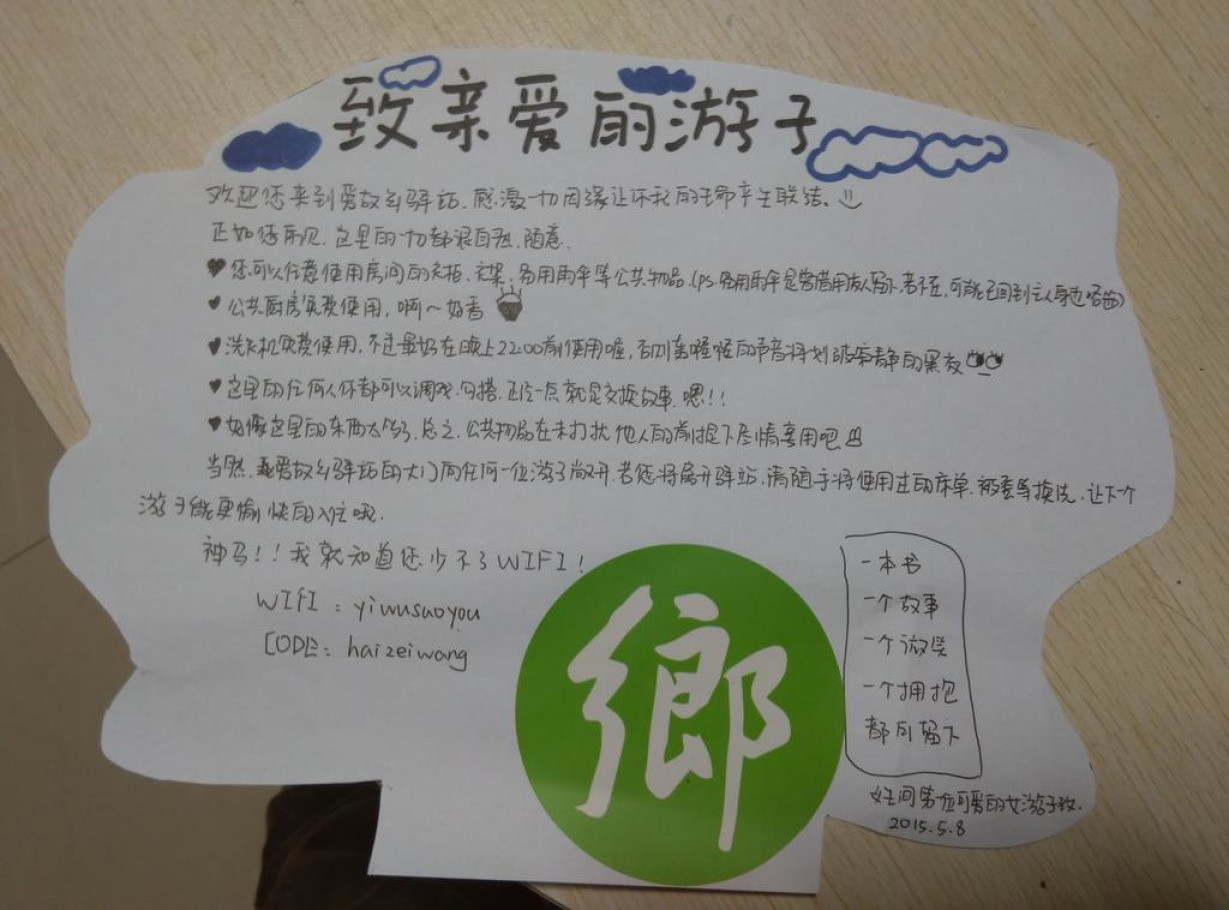 致亲爱的游子
欢迎您来到爱故乡驿站,感激一切因缘让你我的生命产生联结。
正如您所见,这里的一切都很自然,随意.
♥您可以任意使用房间的衣柜、衣架、备用雨伞等公共物品.(ps.备用雨伞是常借用友人留下,若不在,可能已回到主人身边唔齿)
♥公共厨房免费使用,啊~好香
♥洗衣机免费使用,不过最好在晚上22:00前使用喔,否则轰隆隆的声音将划破寂静的黑夜
♥这里的任何人你都可以调戏、勾搭.正经一点就是交换故事,嗯!!
♥好像这里的东西太多了,总之,公共物品在未打扰他人的前提下尽情享用吧
当然,爱故乡驿站的大门向任何一位游子敞开.若您将离开驿站,请随手将使用过的床单、被套等换洗,让下一个
游子能更愉快的入住哦.
神马!!我就知道您少不了WIFI!
WIFI:yiwusuoyou
CODE:haizeiwang
鄉
一本书
一个故事
一个微笑
一个拥抱
都可留下
女生间第一位可爱的女游子致.
2015.5.8